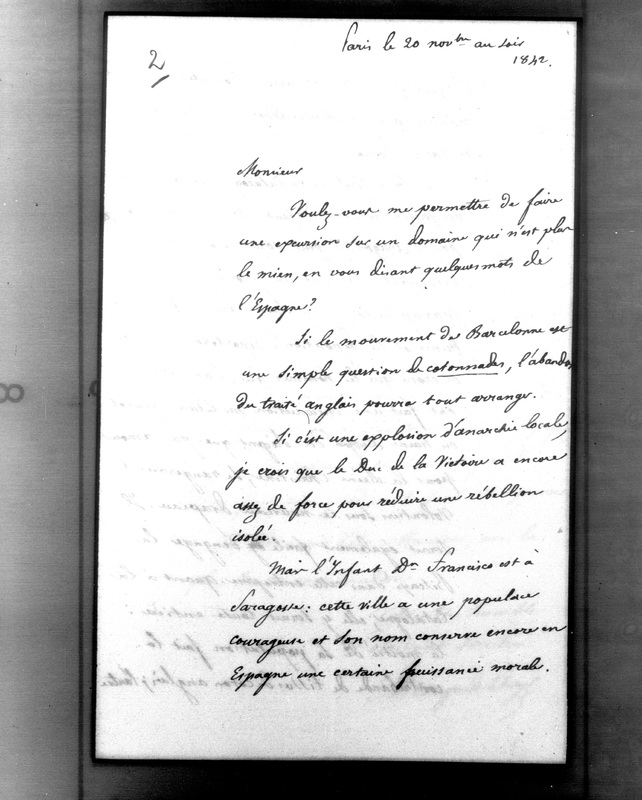 Paris le 20 novbre au soir
1842.
2
Monsieur
Voulez-vous me permettre de faire
une excursion sur un domaine qui n'est plus
le mien, en vous disant quelques mots de
l'Espagne?
Si le mouvement de Barcelonne est
une simple question de cotonnades, l'abandon
du traité anglais pourra tout arranger.
Si c'est une explosion d'anarchie locale,
je crois que le Duc de la Victoire a encore
assez de force pour réduire une rébellion
isolée.
Mais l'Infant Dn Francisco est à
Saragosse: cette ville a une populace
courageuse et son nom conserve encore en
Espagne une certaine puissance morale.